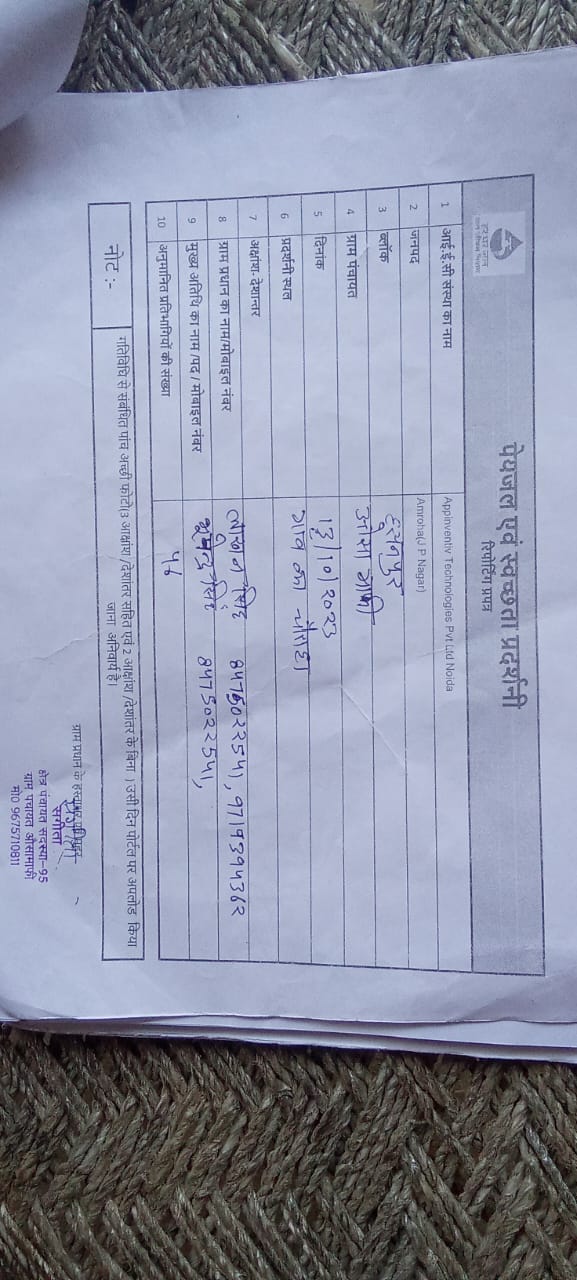 हर घर जल
जल जीवन मिशन
पेयजल एवं स्वच्छता प्रदर्शनी
रिपोर्टिंग प्रपत्र
1 आई.ई.सी संस्था का नाम Appinventiv Technologies Pvt Ltd Noida
2 जनपद Amroha(J P Nagar)
3 ब्लॉक
4 ग्राम पंचायत
5 दिनांक 13/10/2023
6 प्रदर्शनी स्थल गांव का चौराहा
7 अक्षांश- देशान्तर
8 ग्राम प्रधान का नाम/मोबाइल नंबर सिंह 8475022541, 9719394362
9 मुख्य अतिथि का नाम /पद / मोबाइल नंबर सिंह 8475022541,
10 अनुमानित प्रतिभागियों की संख्या 46
नोट :- गतिविधि से संबंधित पांच अच्छी फोटो(3 अक्षांश /देशांतर सहित एवं 2 अक्षांश /देशांतर के बिना ) उसी दिन पोर्टल पर अपलोड किया
जाना अनिवार्य है।
ग्राम प्रधान के हस्ताक्षर
संगीता
क्षेत्र पंचायत सदस्या-95
ग्राम पंचायत औसामाफी
मो0 9675710811